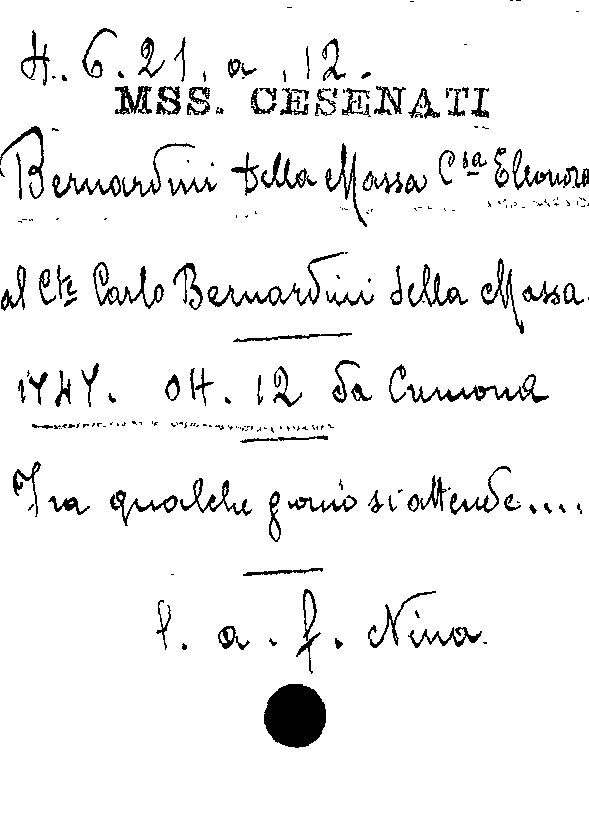 H. 6. 21. a. 12.
MSS. CESENATI
Bernardini Della Massa C.sa Eleonora
al C.te Carlo Bernardini della Massa.
1747. Ott. 12 da Cremona
Tra qualche giorno si attende....
l. a. f. Nina.